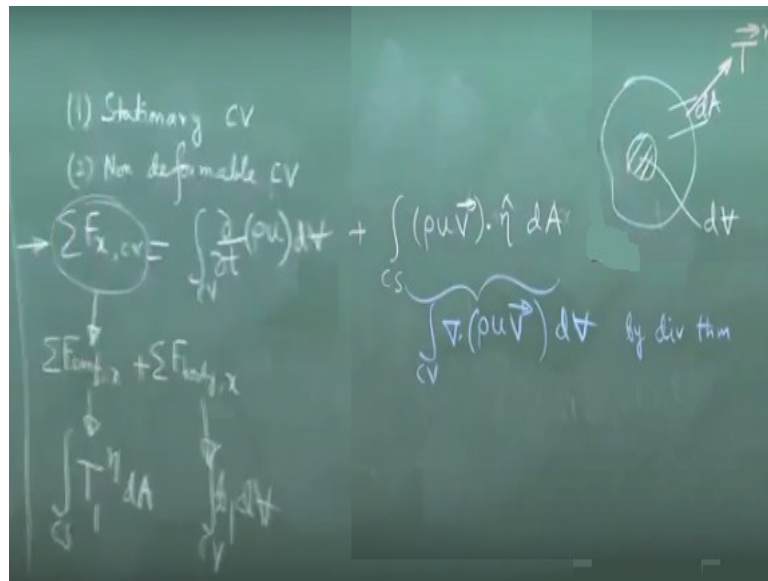 (1) Stationary CV
(2) Non deformable CV
→ ΣF_{x,CV} = ∫_{CV} ∂/∂t (ρu) dV̶ + ∫_{CS} (ρu\vec{V})·η̂ dA
∫_{CV} ∇·(ρu\vec{V}) dV̶ by div thm
ΣF_{surf,x} + ΣF_{body,x}
∫_{CS} T_1^η dA ∫_{CV} b_1 dV̶
\vec{T}^η
dA
dV̶